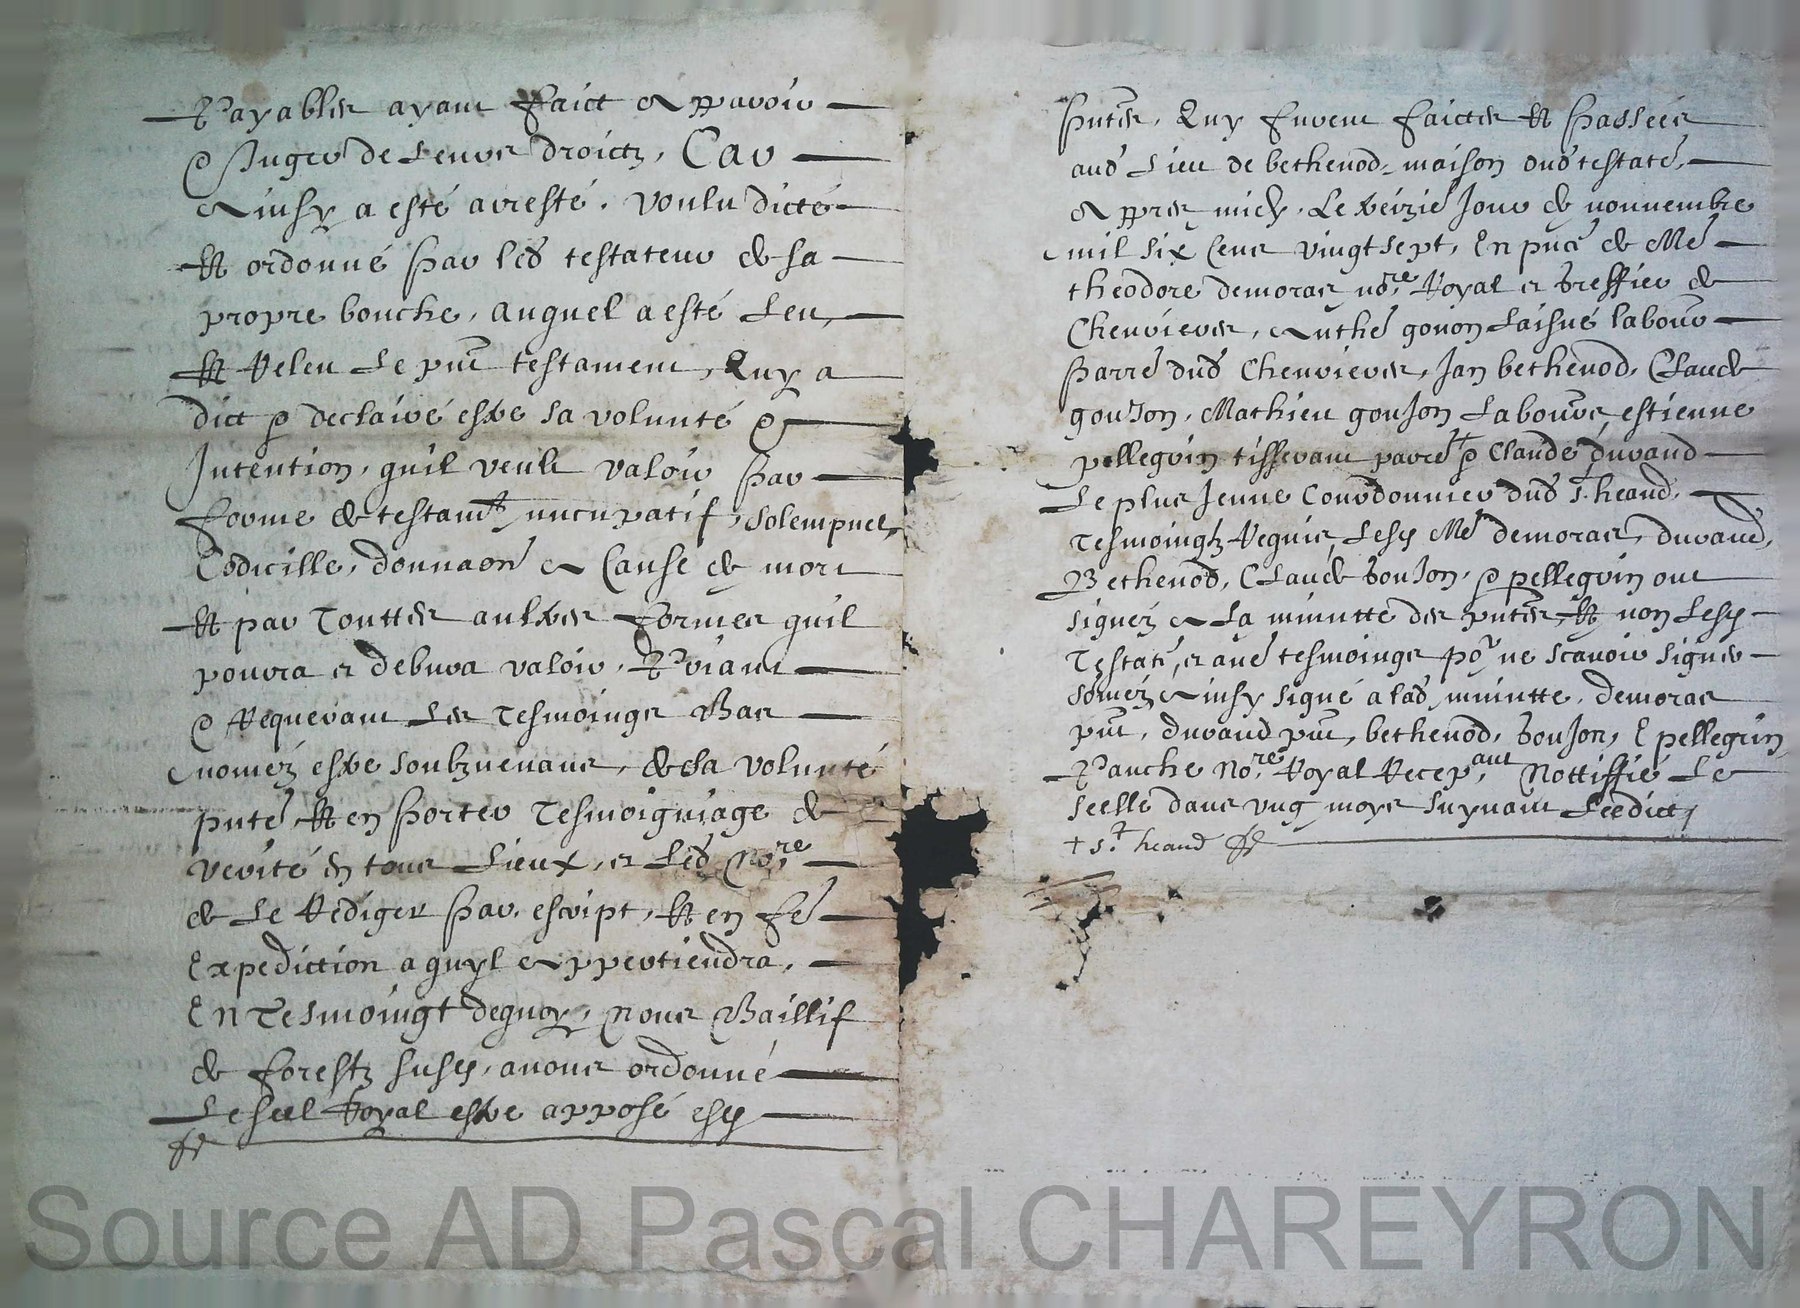 Payables ayant faict apparoir
& Juger de Leurs droictz, Car
Ainsy a esté arresté, voulu dicté
Et ordonné Par led testateur de sa
propre bouche, auquel a esté Leu,
Et Releu Le pnt testament, Quy a
dict & declairé estre sa volunté &
Intention, quil veult valoir Par
forme de testamt nuncupatif, solempnel,
Codicille, donnaon A Cause de mort
Et par Touttes aultres formes quil
pourra et debvra valoir, Priant
& Requerant Les Tesmoings Bas
nomez estre soubzvenans, de sa volunté
pnte, Et en Porter Tesmoignage de
verité en tous Lieux, et Led Nore
de Le Rediger Par escript, Et en fe
Expediction a quyl Appertiendra,
En Tesmoingt dequoy, Nous Baillif
de forestz susd, avons ordonné
Le seel Royal estre apposé esd
Pntes, Quy furent faictes Et Passées
aud Lieu de bethenod, maison dud testate,
Appres midy, Le seizie Jour de nouvembre
mil six Cens vingt sept, En pnce de Me
theodore demoras nore Royal et Greffier de
Chevrieres, Anthe goujon Laisné labour
Parre dud Chevrieres, Jan bethenod, Claude
goujon, Mathieu goujon Labours, estienne
pellegrin tisserant parre & Claude, durand
Le plus Jeune Courdonnier dud St heand,
Tesmoingtz Requis, Lesd Me demoras, durand,
Bethenod, Claude Goujon, & pellegrin ont
signéz A La minutte des pntes, Et non Lesd
Testate, et aue tesmoings por ne scavoir signer
soméz Ainsy signé a lad minutte, demoras
pnt, durand pnt, bethenod, Goujon, E pellegrin
Panche Nore Royal Recepvant Nottiffié Le
seelle dans ung moys suyvant Leedict,
+ St heand
Source AD Pascal CHAREYRON